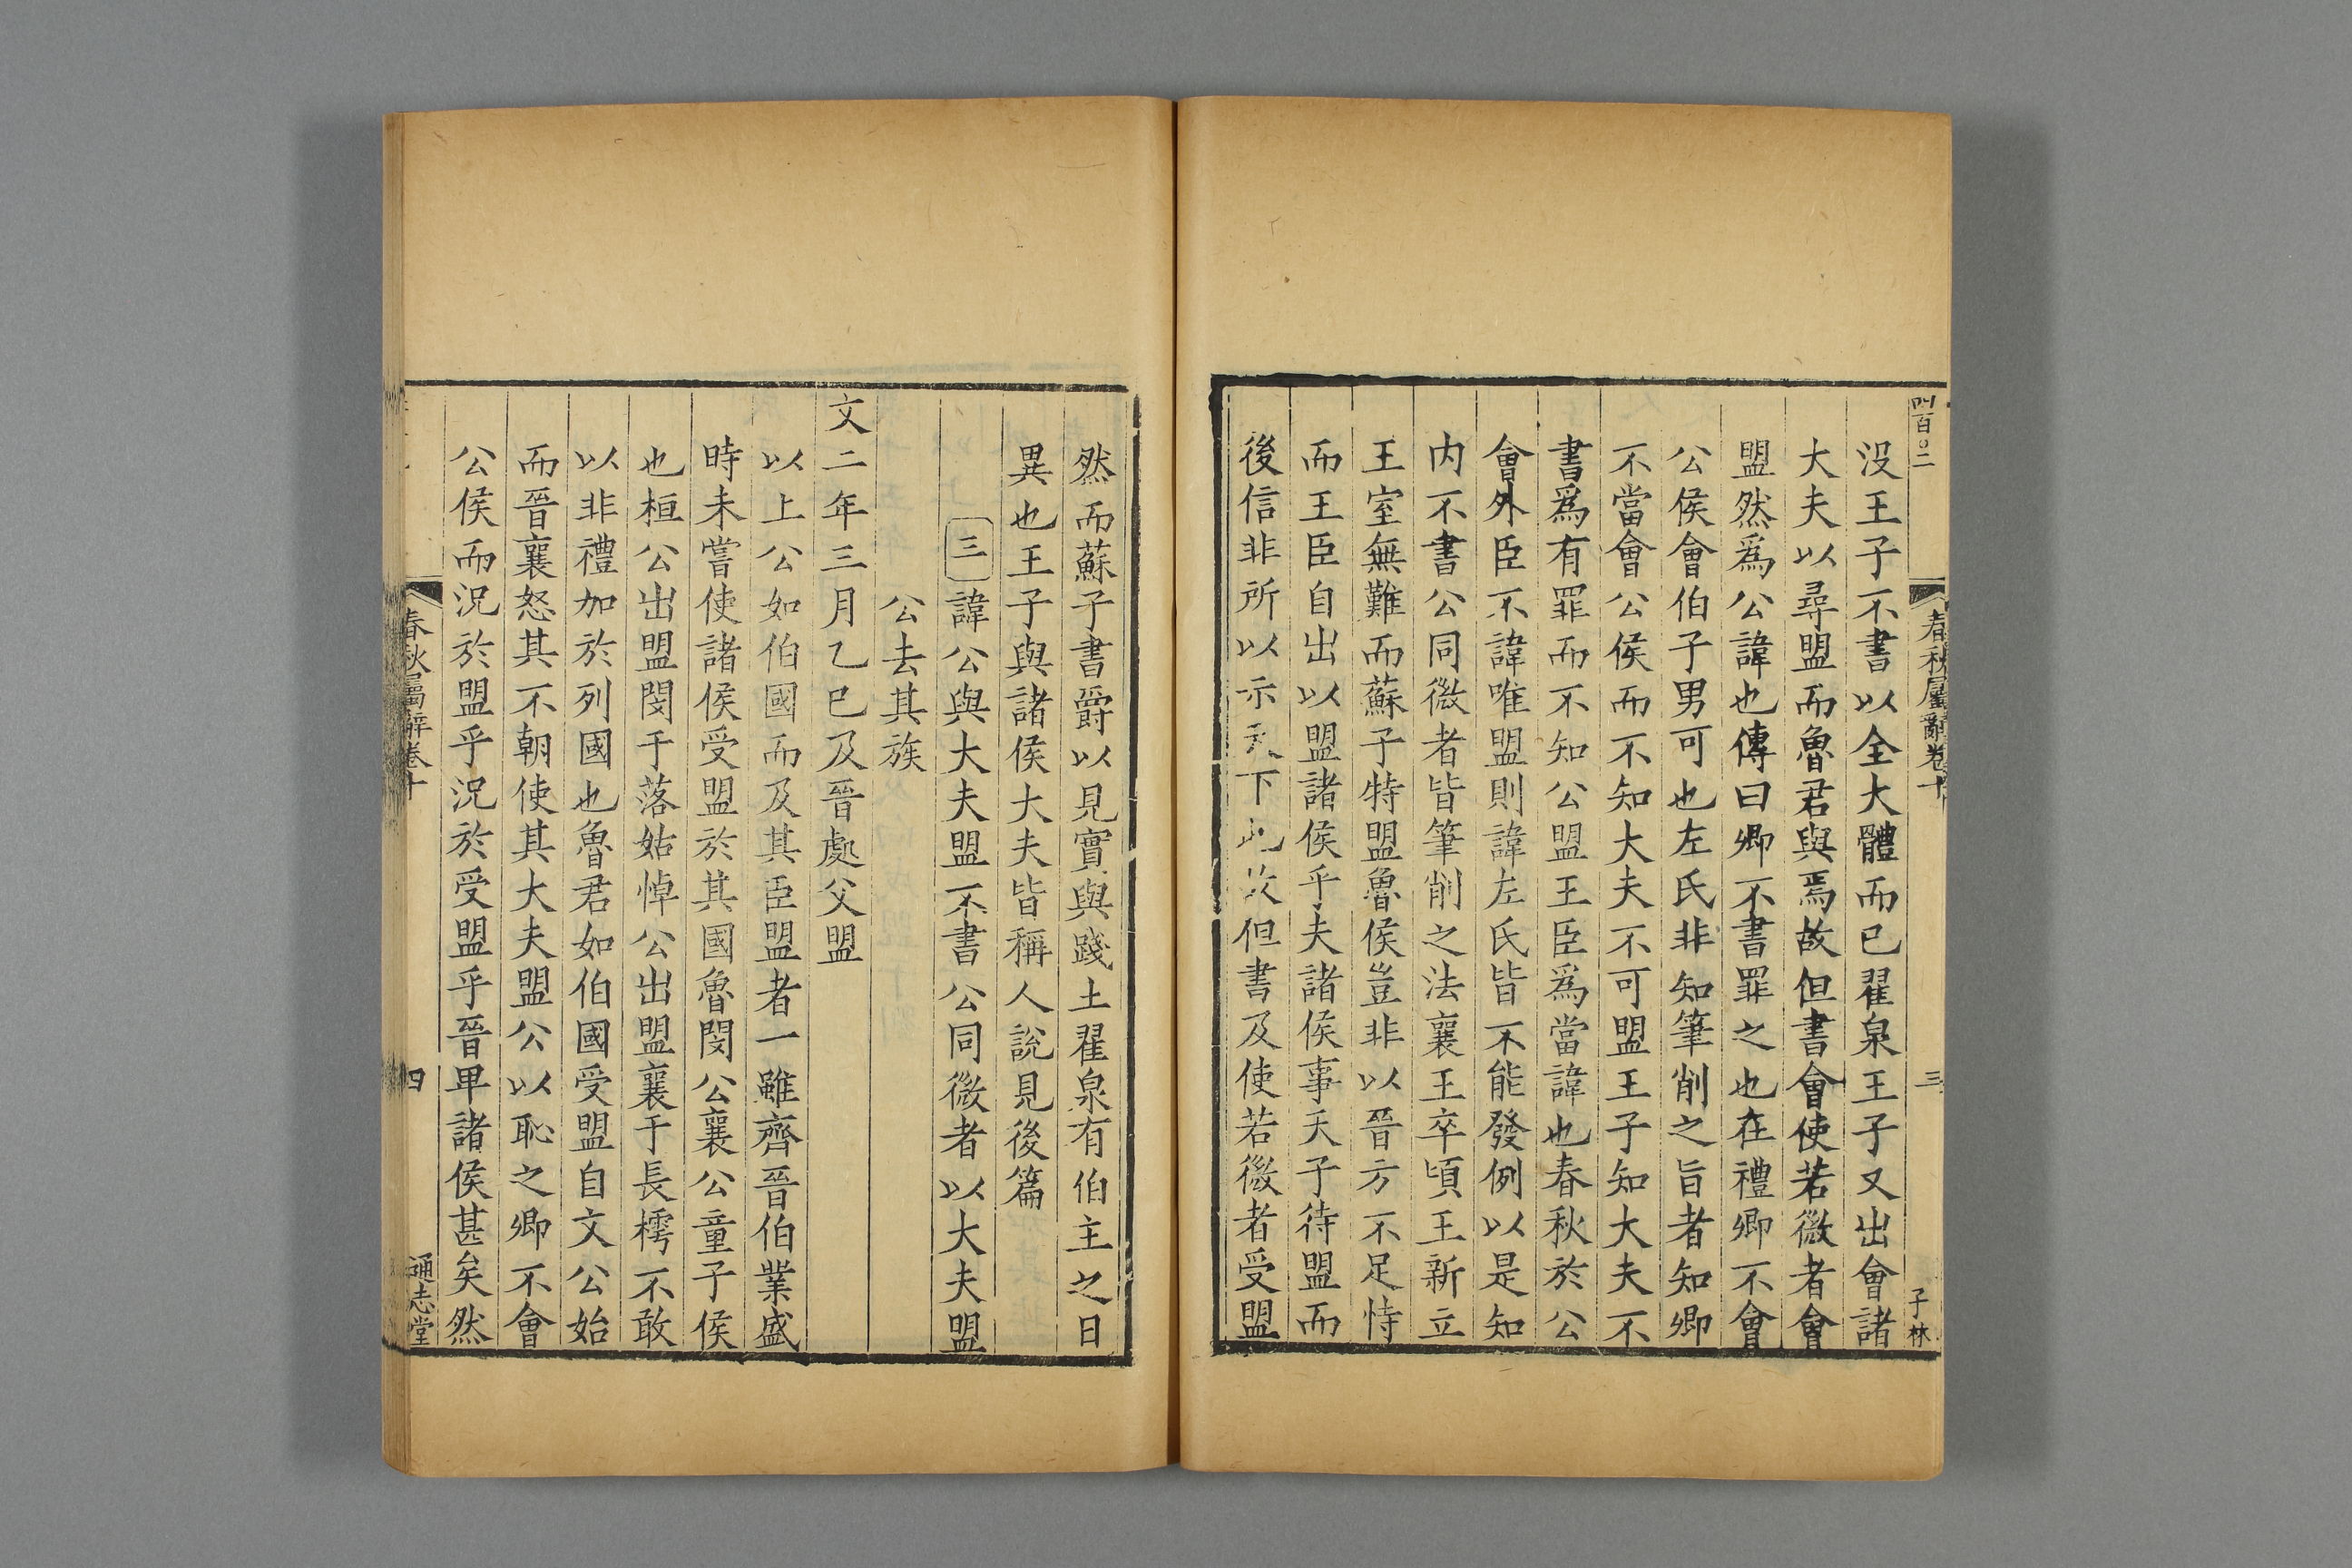 四百〇二
春秋屬辭卷十
三
子林
没王子不書以全大體而已翟泉王子又出會諸
大夫以尋盟而魯君與焉故但書會使若微者會
盟然爲公諱也傳曰卿不書罪之也在禮卿不會
公侯會伯子男可也左氏非知筆削之旨者知卿
不當會公侯而不知大夫不可盟王子知大夫不
書爲有罪而不知公盟王臣爲當諱也春秋於公
會外臣不諱唯盟則諱左氏皆不能發例以是知
内不書公同微者皆筆削之法襄王卒頃王新立
王室無難而蘇子特盟魯侯豈非以晉方不足恃
而王臣自出以盟諸侯乎夫諸侯事天子待盟而
後信非所以示天下也故但書及使若微者受盟
然而蘇子書爵以見實與踐土翟泉有伯主之日
異也王子與諸侯大夫皆稱人說見後篇
三諱公與大夫盟不書公同微者以大夫盟
公去其族
文二年三月乙巳及晉處父盟
以上公如伯國而及其臣盟者一雖齊晉伯業盛
時未嘗使諸侯受盟於其國魯閔公襄公童子侯
也桓公出盟閔于落姑悼公出盟襄于長樗不敢
以非禮加於列國也魯君如伯國受盟自文公始
而晉襄怒其不朝使其大夫盟公以恥之卿不會
公侯而況於盟乎況於受盟乎晉卑諸侯甚矣然
春秋屬辭卷十
四
通志堂